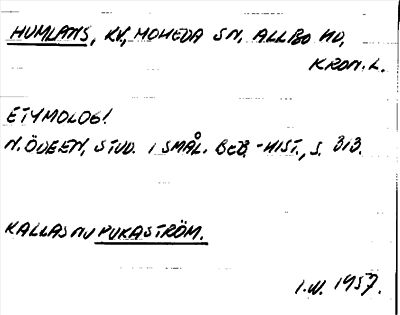 HUMLANÄS, KV, MOHEDA SN, ALLBO HD,
KRON. L.
ETYMOLOGI
N. ÖDEEN, STUD. I SMÅL. BEB. -HIST., S. 313.
KALLAS NU PUKASTRÖM.
I.W. 1957.